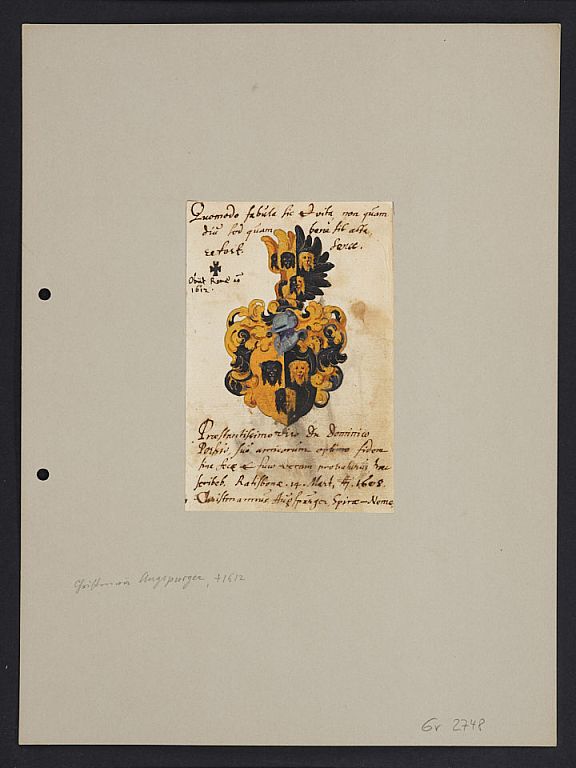 Quomodo fabula sic & vita, non quam
diu sed quam benè sit acta,
refert. Senec.
Obijt Romæ
1612.
Præstantissimo Viro Dn Dominico
suo amicorum optimo fidem
suæ
scribeb. Ratisbonæ. 14. Mart. 1608.
Christmannus Augspurger Spiræ-Neme
Christmann Augspurger, +1612
Gr 2748